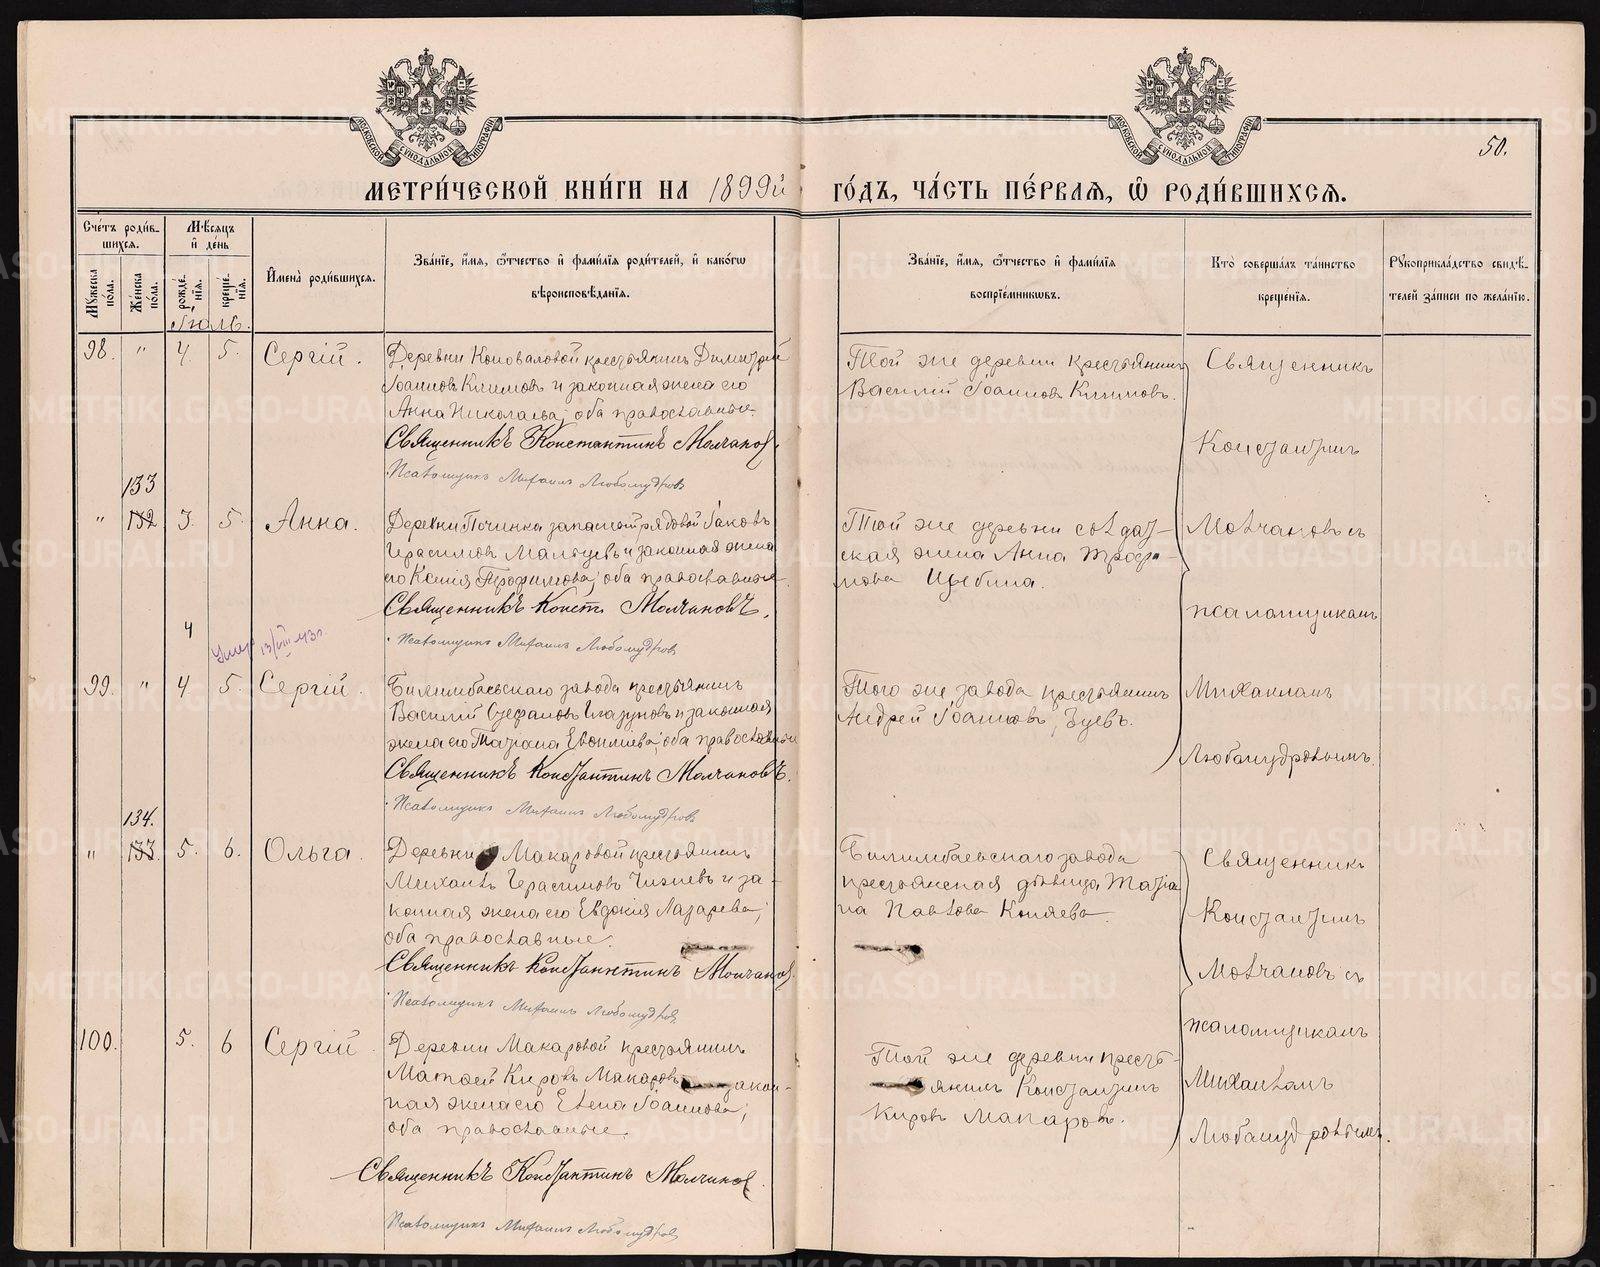 МОСКОВСКОЙ СѴНОДАЛЬНОЙ ТИПОГРАФІИ
МОСКОВСКОЙ СѴНОДАЛЬНОЙ ТИПОГРАФІИ
50.
МЕТРИ́ЧЕСКОЙ КНИ́ГИ НА 1899й ГО́ДЪ, ЧА́СТЬ ПЕ́РВАЯ, Ѡ РОДИ́ВШИХСЯ.
Сче́тъ роди́в-
шихся.
Мꙋжеска по́ла.
Же́нска по́ла.
Мѣ́сяцъ и де́нь
рожде́-
нїя.
креще́-
нїя.
Іюль.
И҆мена̀ роди́вшихся.
Зва́нїе, и҆́мя, ѻ҆́тчество и҆ фами́лїя роди́телей, и҆ како́гѡ
вѣроисповѣ́данїя.
Зва́нїе, и҆́мя, ѻ҆́тчество и҆ фами́лїя
воспрїе́мникѡвъ.
Кто̀ соверша́лъ та́инство
креще́нїя.
Рꙋкоприкла́дство свидѣ́-
телей за́писи по жела́нїю.
98. " 4. 5. Сергій.
Деревни Коноваловой крестьянинъ Димитрій
Іоанновъ Климовъ и законная жена его
Анна Николаева; оба православные.
Священникъ Константинъ Молчановъ.
Псаломщикъ Михаилъ Любомудровъ
Той же деревни крестьянинъ
Василій Іоанновъ Климовъ.
Священникъ
Константинъ
133
" 132 3. 5. Анна.
Деревни Починка запасной рядовой Іаковъ
Герасимовъ Мальцевъ и законная жена
его Ксенія Трофимова; оба православные.
Священникъ Конст. Молчановъ.
Псаломщикъ Михаилъ Любомудровъ
Той же деревни солдат-
ская жена Анна Трофи-
мова
Молчановъ съ
псаломщикомъ
4
Умер 13/VIII 43г
99. " 4. 5. Сергій.
Билимбаевскаго завода крестьянинъ
Василій Стефановъ Глазуновъ и законная
жена его Татіана Евфиміева; оба православные
Священникъ Константинъ Молчановъ.
Псаломщикъ Михаилъ Любомудровъ
Того же завода крестьянинъ
Андрей Іоанновъ Зуевъ.
Михаиломъ
Любомудровымъ.
134.
" 133. 5. 6. Ольга.
Деревни Макаровой крестьянинъ
Михаилъ Герасимовъ и за-
конная жена его Евдокія Лазарева;
оба православные.
Священникъ Константинъ Молчановъ
Псаломщикъ Михаилъ Любомудровъ
Билимбаевскаго завода
крестьянская дѣвица Татіа-
на Павлова Коняева.
Священникъ
Константинъ
Молчановъ съ
100. 5. 6 Сергій
Деревни Макаровой крестьянинъ
Матѳей Кировъ Макаровъ закон-
ная жена его Елена Іоаннова;
оба православные.
Священникъ Константинъ Молчановъ.
Псаломщикъ Михаилъ Любомудровъ
Той же деревни кресть-
янинъ Константинъ
Кировъ Макаровъ.
псаломщикомъ
Михаиломъ
Любомудровымъ.
METRIKI.GASO-URAL.RU